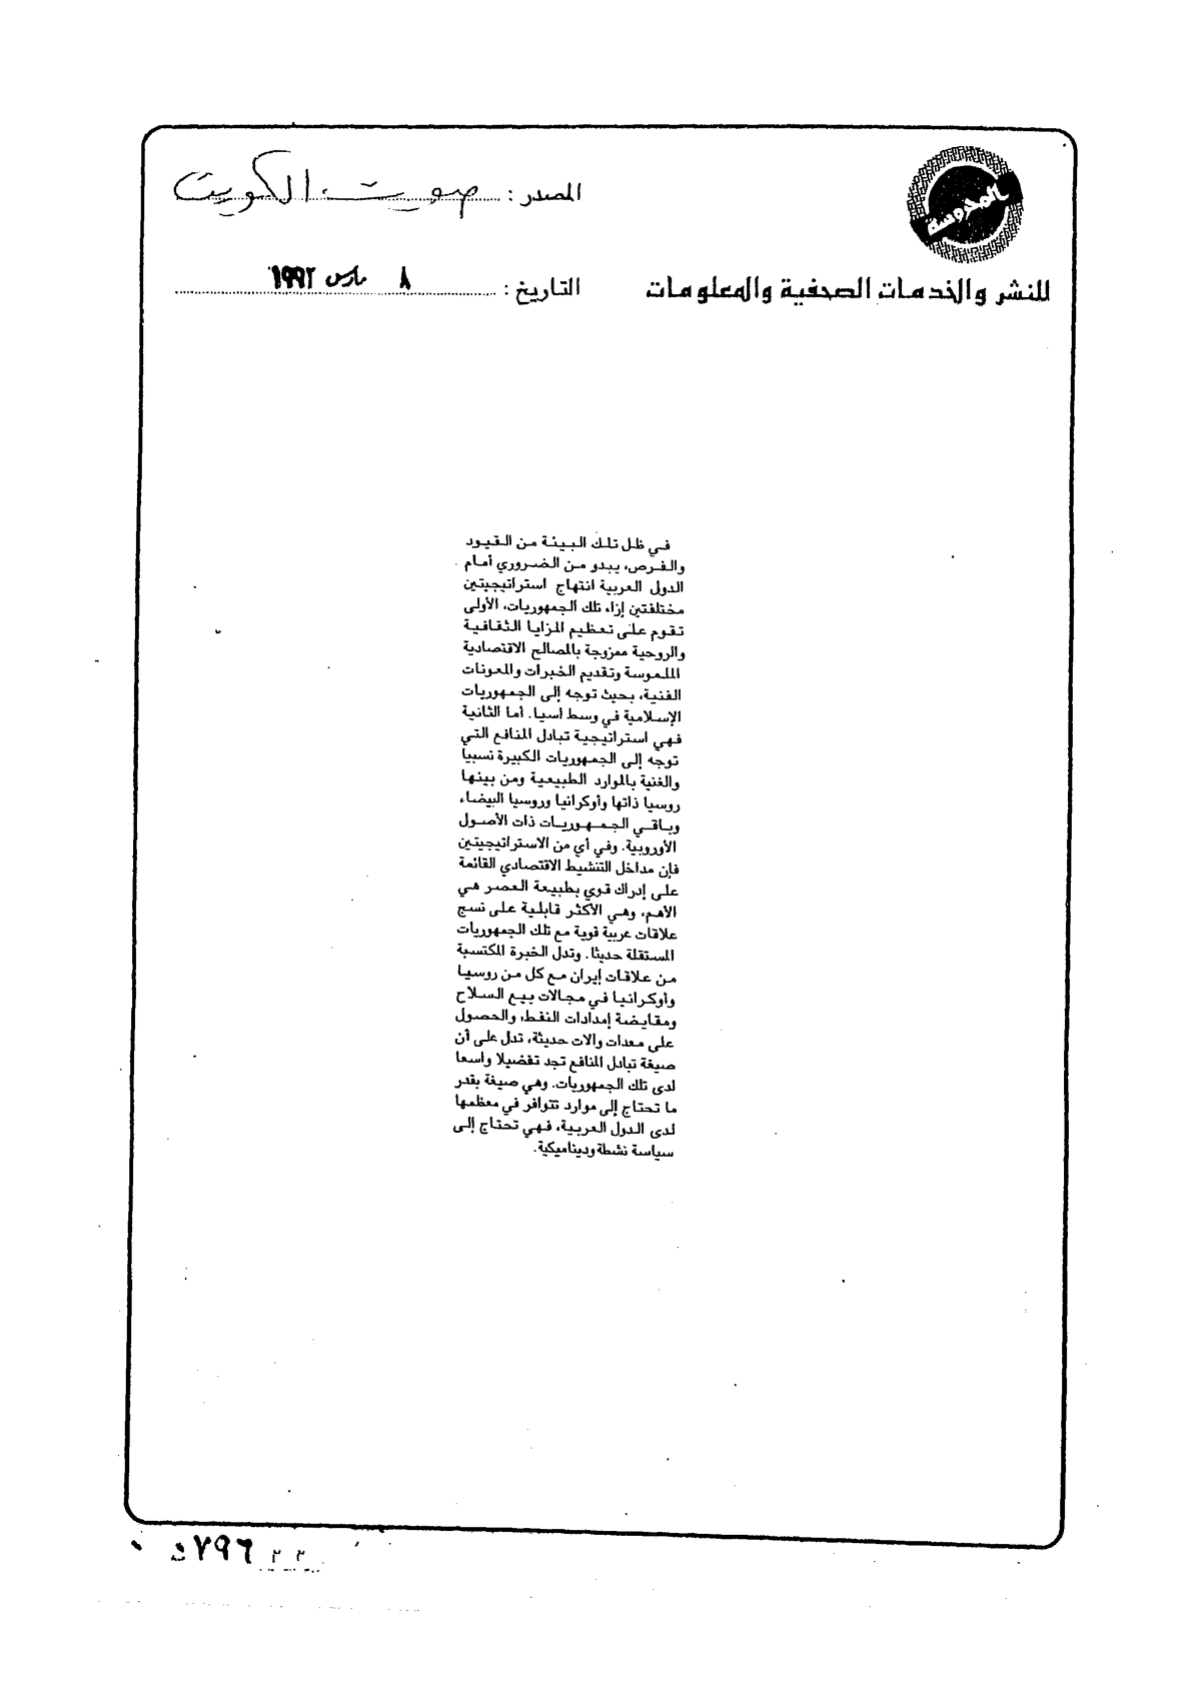 المحروسة
المصدر : صوت الكويت
للنشر والخدمات الصحفية والمعلومات
التاريخ : ٨ مارس ١٩٩٢
في ظل تلك البيئة من القيود
والفرص، يبدو من الضروري أمام
الدول العربية انتهاج استراتيجيتين
مختلفتين إزاء تلك الجمهوريات، الأولى
تقوم على تعظيم المزايا الثقافية
والروحية ممزوجة بالمصالح الاقتصادية
الملموسة وتقديم الخبرات والمعونات
الفنية، بحيث توجه إلى الجمهوريات
الإسلامية في وسط آسيا. أما الثانية
فهي استراتيجية تبادل المنافع التي
توجه إلى الجمهوريات الكبيرة نسبيا
والغنية بالموارد الطبيعية ومن بينها
روسيا ذاتها وأوكرانيا وروسيا البيضاء،
وباقي الجمهوريات ذات الأصول
الأوروبية. وفي أي من الاستراتيجيتين
فإن مداخل التنشيط الاقتصادي القائمة
على إدراك قوي بطبيعة العصر هي
الأهم، وهي الأكثر قابلية على نسج
علاقات عربية قوية مع تلك الجمهوريات
المستقلة حديثا. وتدل الخبرة المكتسبة
من علاقات إيران مع كل من روسيا
وأوكرانيا في مجالات بيع السلاح
ومقايضة إمدادات النفط، والحصول
على معدات والات حديثة، تدل على أن
صيغة تبادل المنافع تجد تفضيلا واسعا
لدى تلك الجمهوريات. وهي صيغة بقدر
ما تحتاج إلى موارد تتوافر في معظمها
لدى الدول العربية، فهي تحتاج إلى
سياسة نشطة وديناميكية.